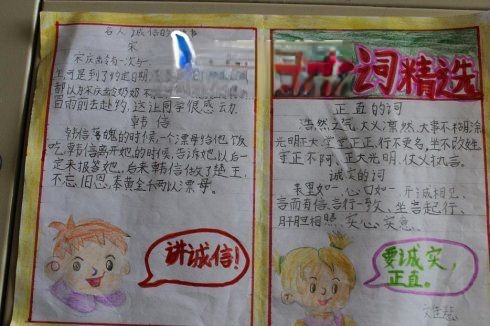 名人诚信的
宋
宋庆龄有一次与
上可是到了约定日期
都以为宋庆龄奶奶不
冒雨前去赴约,这让同学很感动.
韩信
韩信落魄的时候,一个漂母给他饭
吃.韩信离开她的时候.告诉她以后一
定来报答她.后来韩信做了楚王,
不忘旧恩.奉黄金千两以漂母.
讲诚信!
词精选
正直的词
浩然之气,大义凛然,大事不糊涂
光明正大 堂堂正正,行不更名,坐不改姓
守正不阿、正大光明,仗义执言。
诚实的词
表里如一,心口如一,开诚相见、
言而有信,言行一致、坐言起行、
肝胆相照、实心实意.
要诚实,
正直。